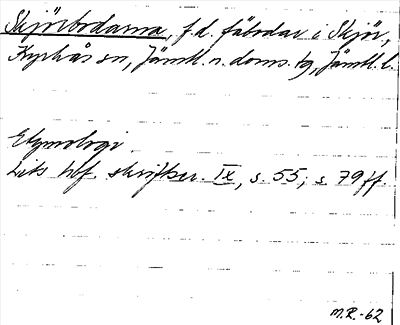 Skjörbodarna, f.d. fäbodar i Skjör,
Kyrkås sn, Jämtl. n. doms. tg, Jämtl. l.
Etymologi.
Lits hbf. skriftser. IX, s. 55; s 79 ff.
M.R.-62